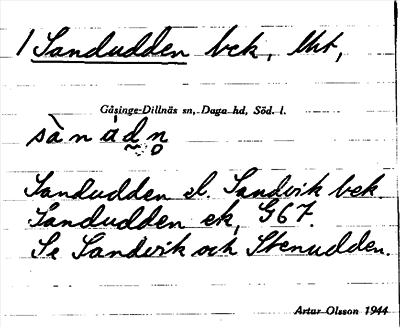 1 Sandudden bek, Uht,
Gåsinge-Dillnäs sn, Daga hd, Söd. l.
sànádn̥
Sandudden el. Sandvik bek
Sandudden ek, G67.
Se Sandvik och Stenudden.
Artur Olsson 1944